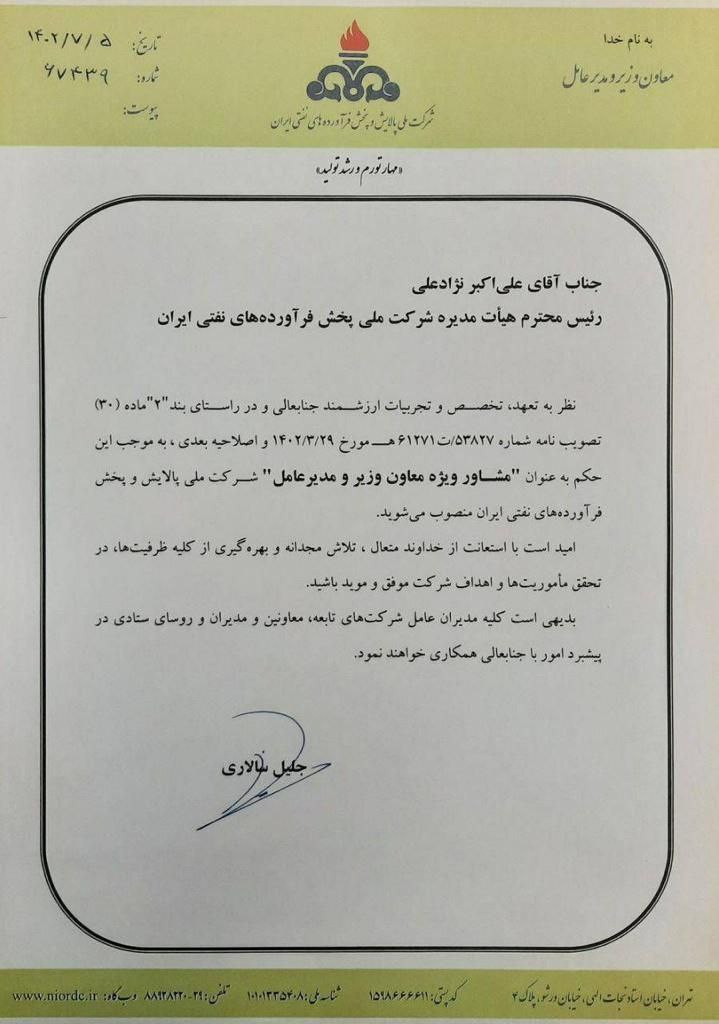 به نام خدا
معاون وزیر و مدیر عامل
شرکت ملی پالایش و پخش فرآورده های نفتی ایران
تاریخ: ۱۴۰۲/۷/۵
شماره: ۶۷۴۳۹
پیوست:
«مهار تورم و رشد تولید»
جناب آقای علی‌اکبر نژادعلی
رئیس محترم هیأت مدیره شرکت ملی پخش فرآورده‌های نفتی ایران
نظر به تعهد، تخصص و تجربیات ارزشمند جنابعالی و در راستای بند"۲"ماده (۳۰)
تصویب نامه شماره ۵۳۸۲۷/ت۶۱۲۷۱ هـ مورخ ۱۴۰۲/۳/۲۹ و اصلاحیه بعدی ، به موجب این
حکم به عنوان "مشاور ویژه معاون وزیر و مدیرعامل" شرکت ملی پالایش و پخش
فرآورده‌های نفتی ایران منصوب می‌شوید.
امید است با استعانت از خداوند متعال ، تلاش مجدانه و بهره‌گیری از کلیه ظرفیت‌ها، در
تحقق مأموریت‌ها و اهداف شرکت موفق و موید باشید.
بدیهی است کلیه مدیران عامل شرکت‌های تابعه، معاونین و مدیران و روسای ستادی در
پیشبرد امور با جنابعالی همکاری خواهند نمود.
جلیل سالاری
تهران، خیابان استاد نجات الهی، خیابان ورشو، پلاک ۴ کد پستی: ۱۵۹۸۶۶۶۶۱۱ شناسه ملی: ۱۰۱۰۱۳۳۵۴۰۸ تلفن: ۲۹-۸۸۹۲۸۲۲۰ وب گاه: www.niordc.ir